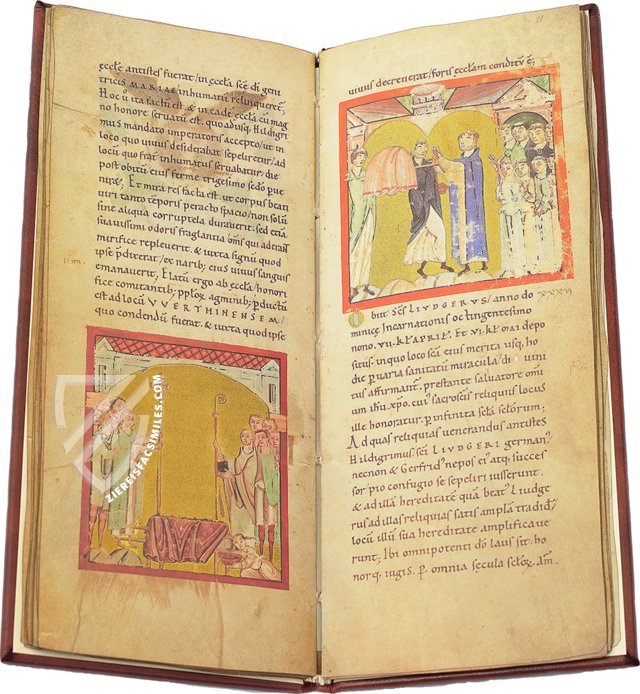 ęccle antistes fuerat/in ęccla scę di gen
tricis MARIAE inhumatũ relinqueret̃,
Hoc ũ ita factũ est. & in eadẽ eccla cũ mag
no honore seruatũ est. quoadusq; Hildigri
mus mandato imperatoris accepto/ut in
loco quo uiuus desiderabat sepeliret̃/ad
locũ quo frat̃ inhumatus seruabatur/die
post obitũ eius ferme trigesimo sedo pue
niret̃. Et mira res facta est. ut corpus beati
uiri tanto tẽporis peracto spacio/non solũ
sine aliqua corruptela durauerit. sed etiã
suauissimi odoris fraglantia om̃s qui aderant
mirifice repleuerit. & iuxta signũ quod
ipse p̃dixerat/ex narib; eius uiuus sanguis
emanauerit. Elatũ ergo ab eccla/honori
fice comitantib; pploꝝ agminib; pductũ
est ad locũ VVERTHINENSEM/
quo condendũ fuerat. & iuxta quod ipse
uiuus decreuerat/foris ecclam conditũ ẽ;
Obiit scs LIVDGERVS/anno do
minicę Incarnationis octingentesimo
nono. VII.kl̃ APRILĒ. Et VI.kl̃ MAI depo
situs. inquo loco scm̃ eius merita usq; ho
die p̃uaria sanitatũ miracula/di uini
tus affirmant̃. prestante saluatore om̃i
um ihu xpo. cui sacrosc̃is reliquiis locus
ille honoratur. p infinita sclã sclorum;
Ad quas reliquias uenerandus antistes
Hildigrimus sci LIVDGERI german̾
necnon & Gerfrid̾ nepos ei̾ atq; succes
sor/pio confugio se sepeliri iusserunt.
& ad illã hereditatẽ quã beat̾ Liudge
rus ad illas reliquias satis amplã tradid̃/
locũ illũ sua hereditate amplificaue
runt. Ibi omnipotenti dõ laus sit/ho
norq; iugis. p omnia secula scloꝝ. am̃.
ZIEREISFACSIMILES.COM